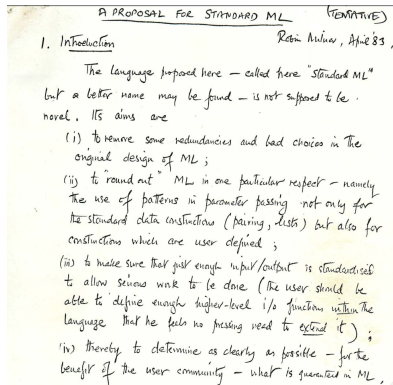 A PROPOSAL FOR STANDARD ML (TENTATIVE)
1. Introduction Robin Milner, April '83
The language proposed here – called here "Standard ML"
but a better name may be found – is not supposed to be
novel. Its aims are
(i) to remove some redundancies and bad choices in the
original design of ML;
(ii) to "round out" ML in one particular respect – namely
the use of patterns in parameter passing not only for
the standard data constructions (pairing, lists) but also for
constructions which are user defined;
(iii) to make sure that just enough input/output is standardised
to allow serious work to be done (the user should be
able to define enough higher-level i/o functions within the
language that he feels no pressing need to extend it);
(iv) thereby to determine as clearly as possible – for the
benefit of the user community – what is guaranteed in ML,